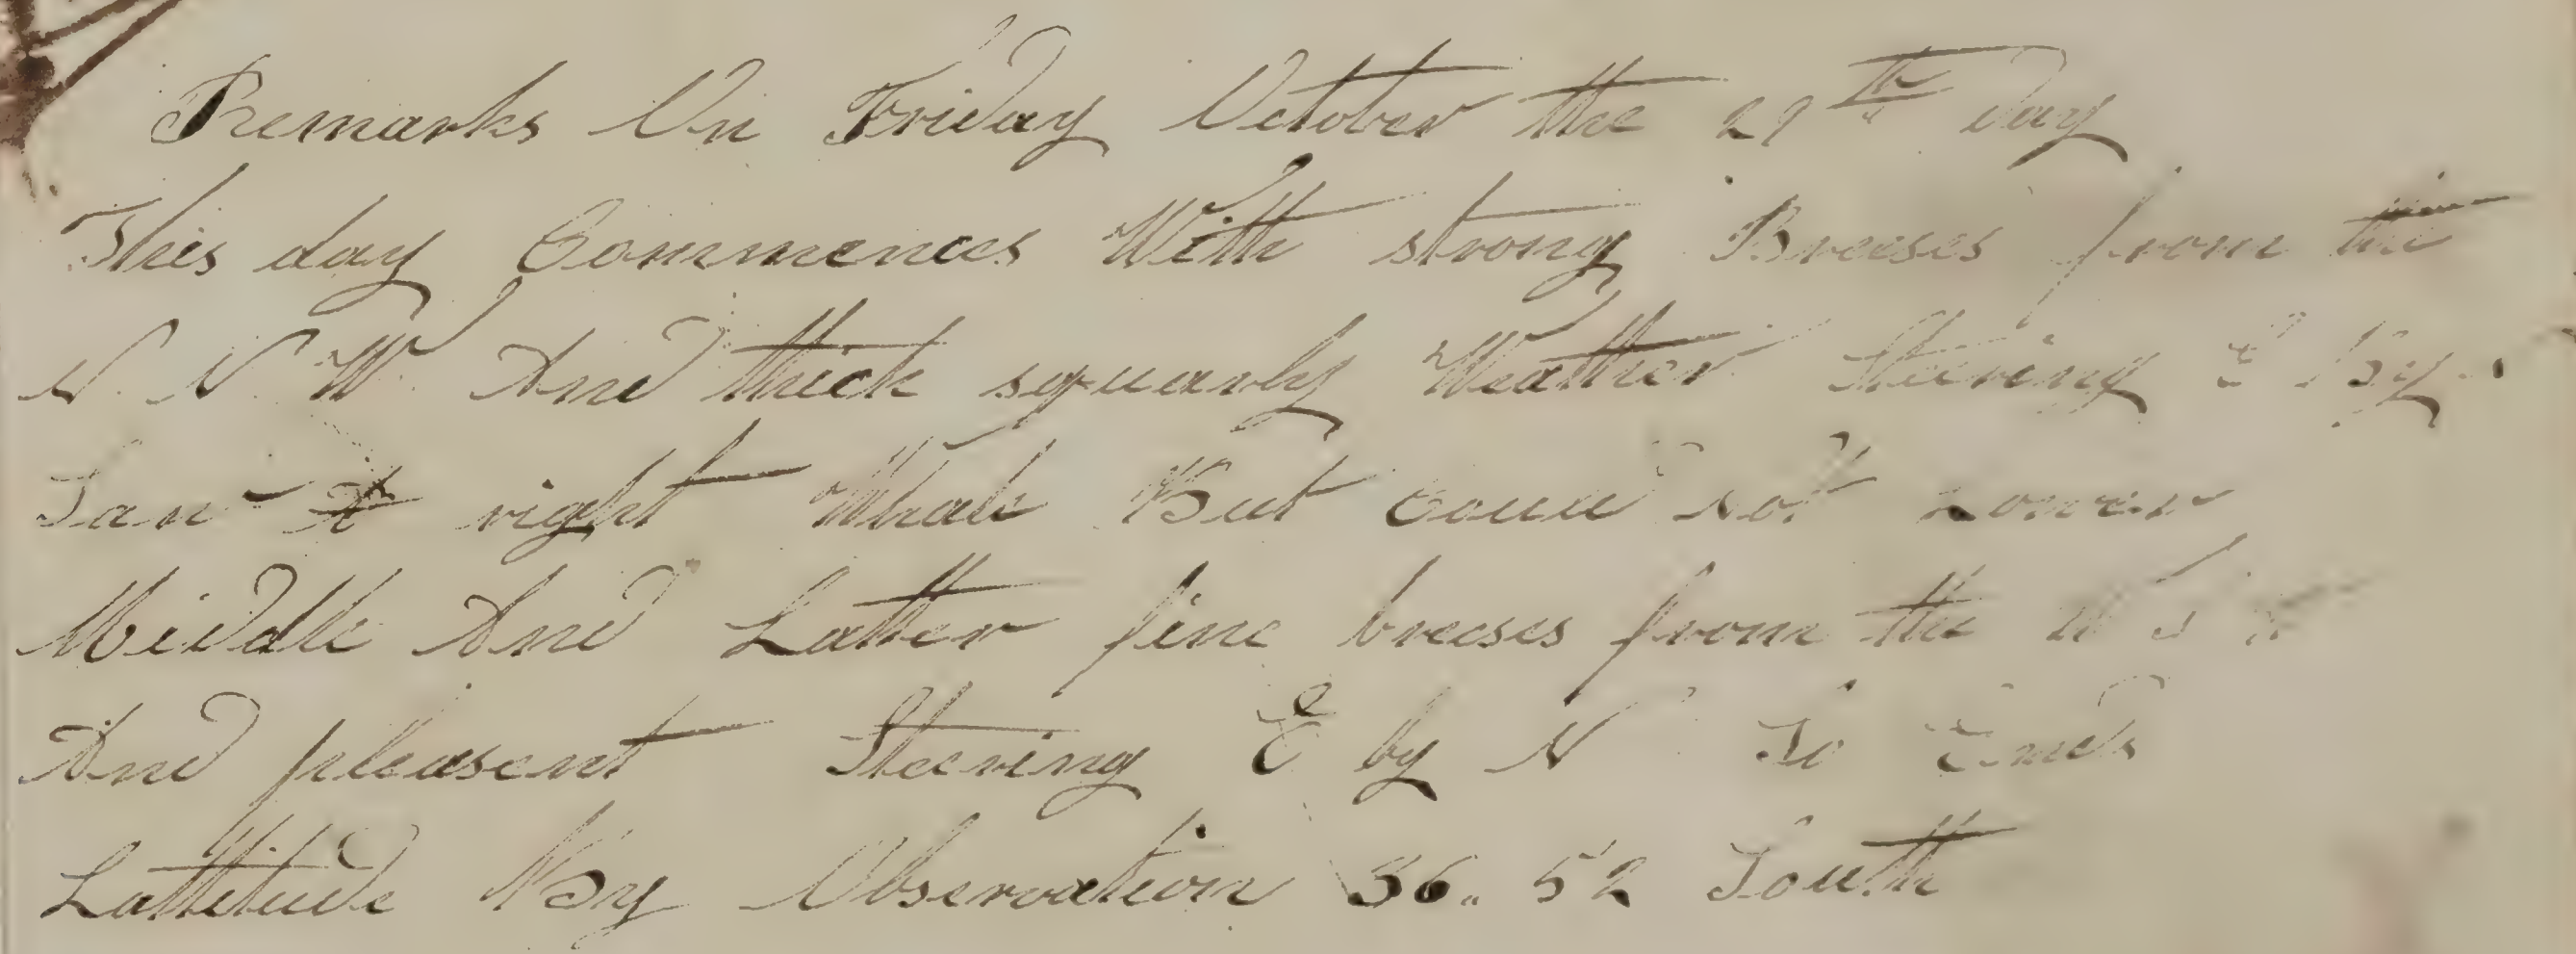 Remarks On Friday October the 29th day
This day Commences With strong Breeses from the
N. N. W. And thick squarly Weather Steering E by
Saw A right Whale But Could not Lower
Middle And Latter fine breeses from the W
And pleasent Steering E by N So Ends
Lattitude By Observation 36.. 52 South